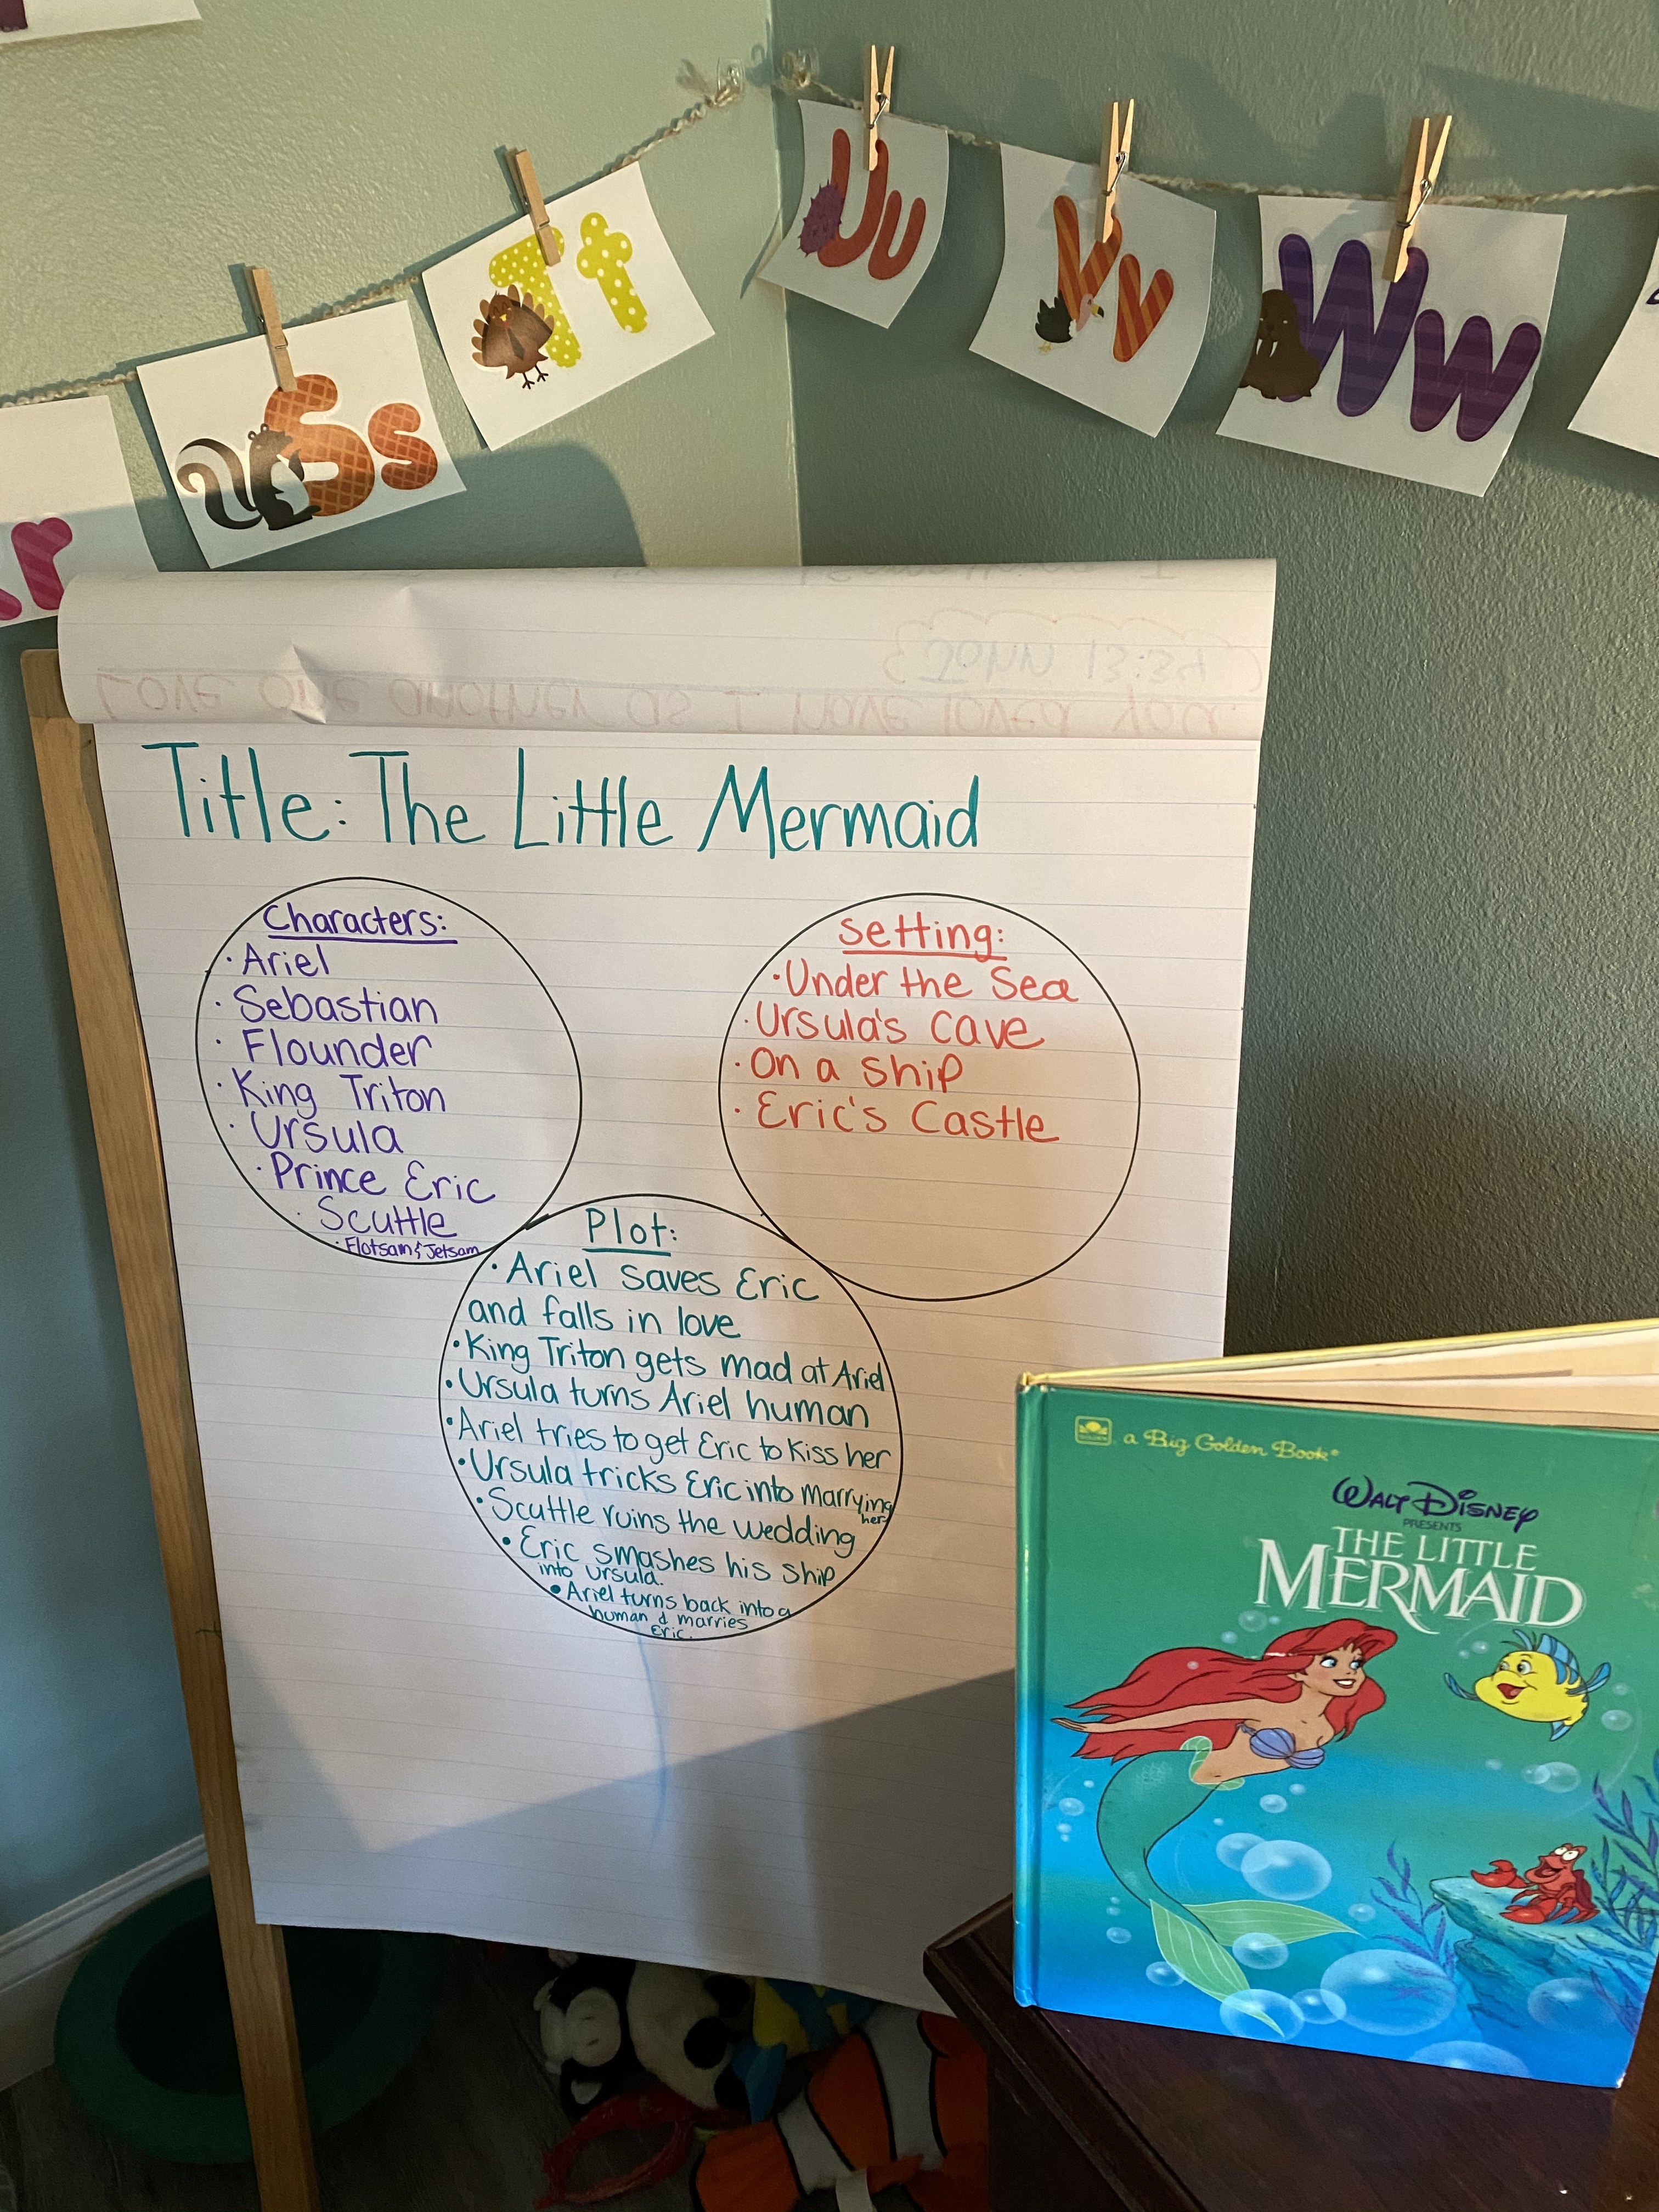 r
Ss
Tt
Uu
Vv
Ww
John 13:34
Love one another as I have loved you.
Title: The Little Mermaid
Characters:
· Ariel
· Sebastian
· Flounder
· King Triton
· Ursula
· Prince Eric
· Scuttle
· Flotsam & Jetsam
Setting:
· Under the Sea
· Ursula's cave
· On a ship
· Eric's Castle
Plot:
• Ariel saves Eric
and falls in love
• King Triton gets mad at Ariel
• Ursula turns Ariel human
• Ariel tries to get Eric to kiss her
• Ursula tricks Eric into marrying
her
• Scuttle ruins the wedding
• Eric smashes his ship
into Ursula.
• Ariel turns back into a
human & marries
Eric.
a Big Golden Book®
WALT DISNEY
PRESENTS
THE LITTLE
MERMAID